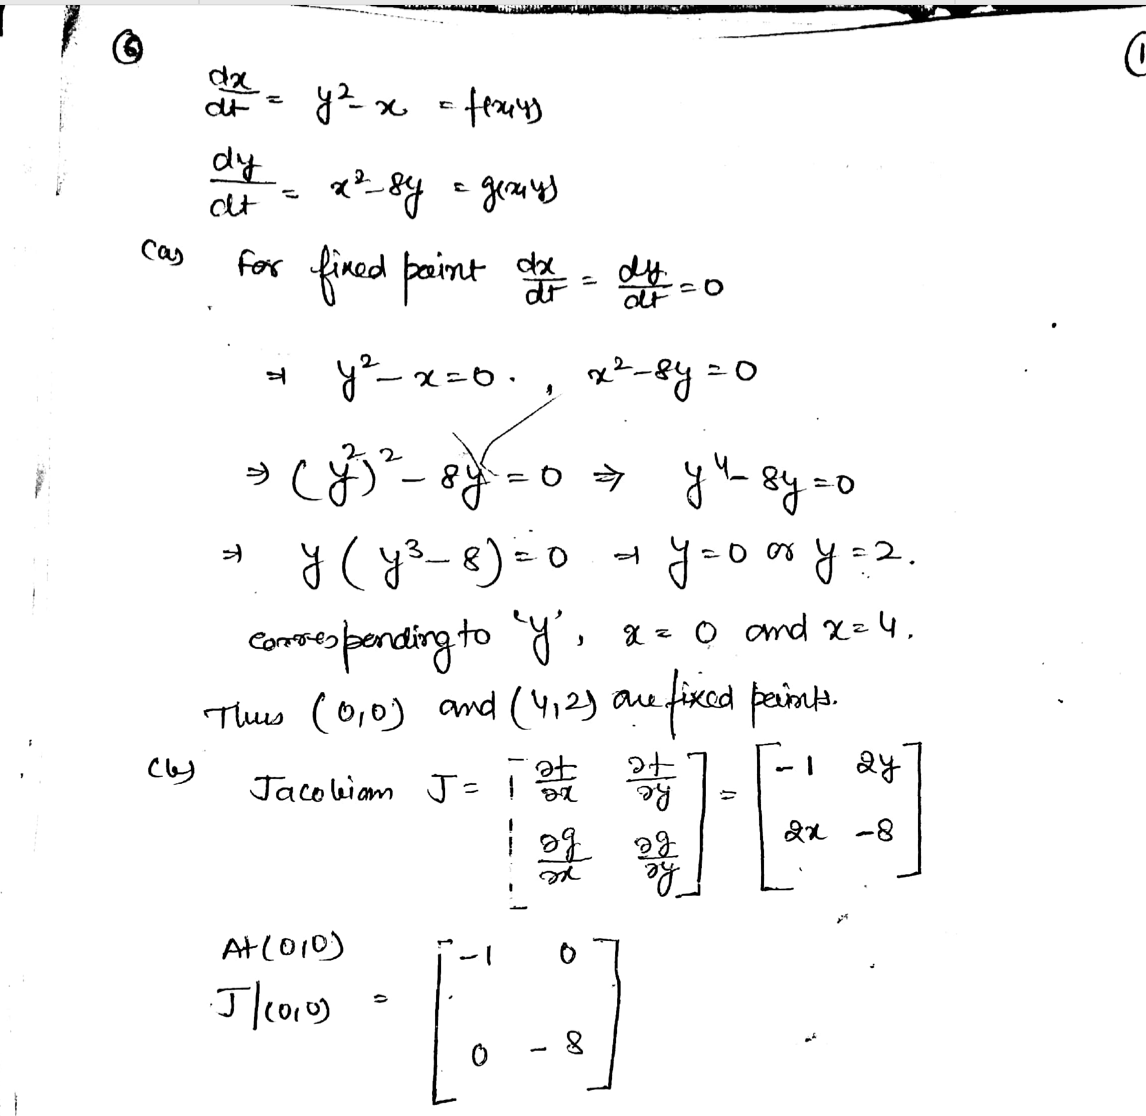 ⑥
①
dx/dt = y² - x = f(x,y)
dy/dt = x² - 8y = g(x,y)
(a) For fixed point dx/dt = dy/dt = 0
⇒ y² - x = 0 . , x² - 8y = 0
⇒ (y²)² - 8y = 0 ⇒ y⁴ - 8y = 0
⇒ y (y³ - 8) = 0 ⇒ y = 0 or y = 2.
corresponding to 'y', x = 0 and x = 4.
Thus (0,0) and (4,2) are fixed points.
(b) Jacobian J = [ ∂f/∂x ∂f/∂y ; ∂g/∂x ∂g/∂y ] = [ -1 2y ; 2x -8 ]
At (0,0)
J|(0,0) = [ -1 0 ; 0 -8 ]